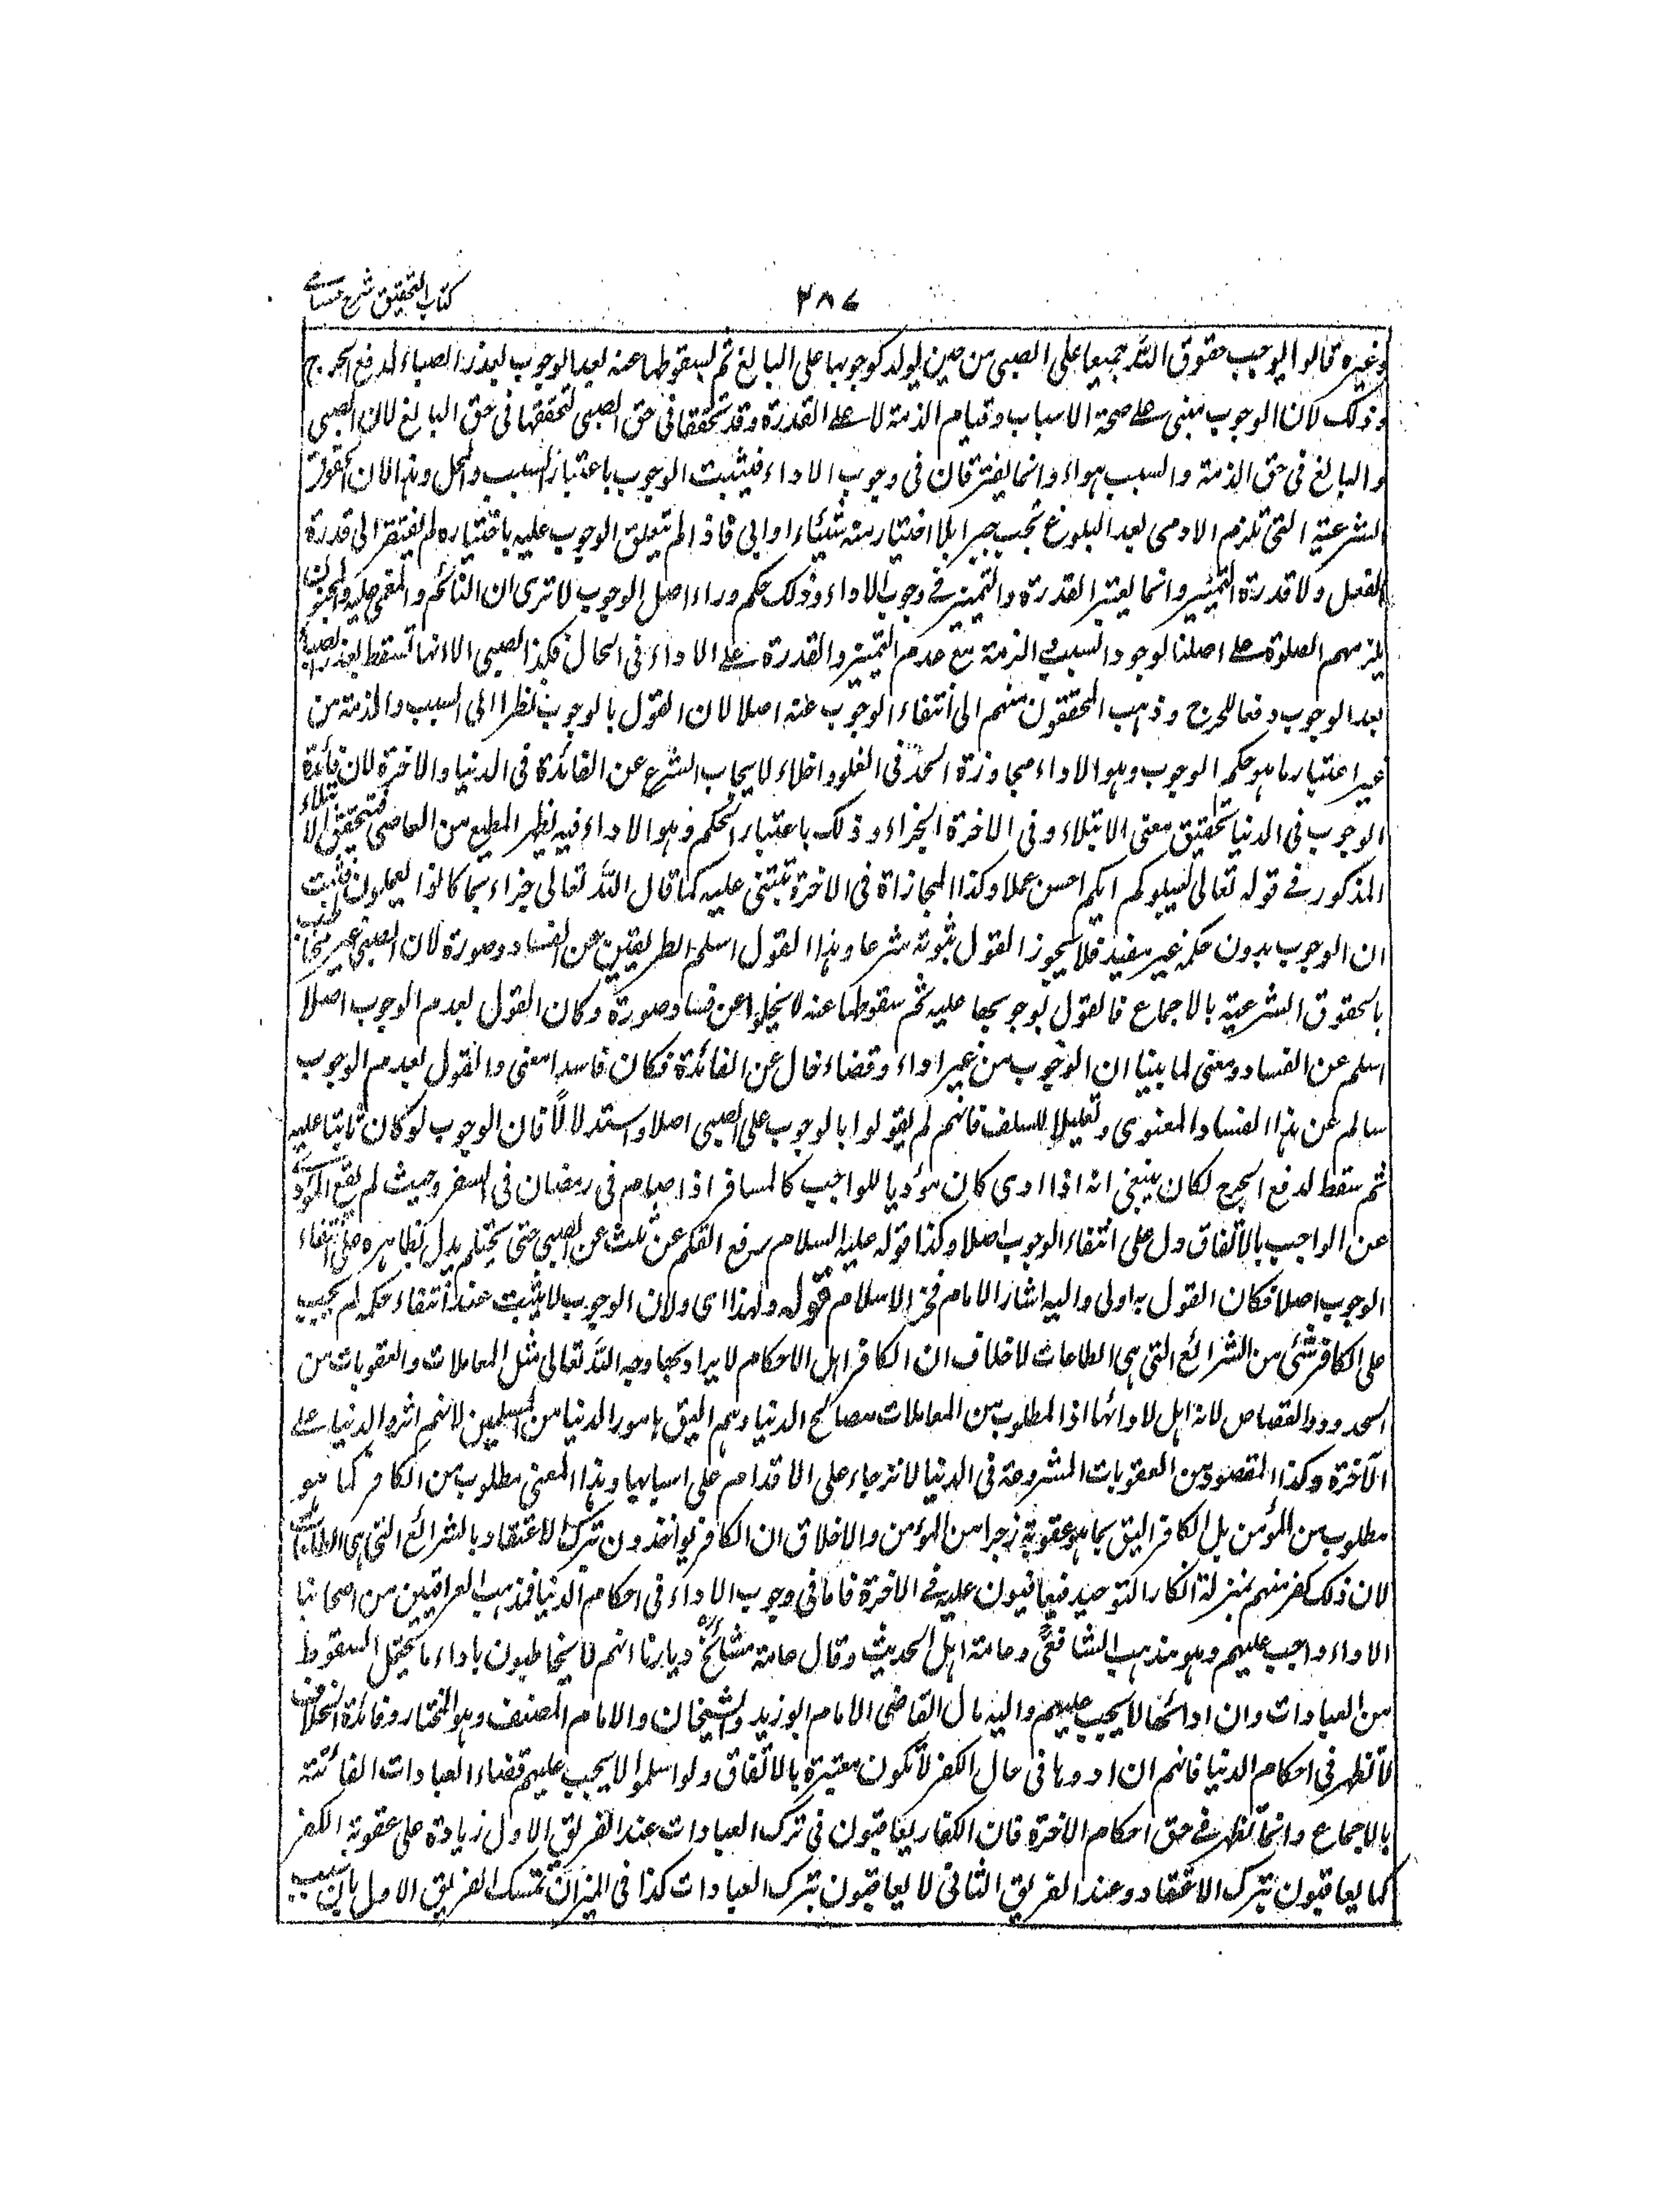 كتاب التحقيق شرح حسامى
٢٨٧
وغيره قالوا بوجوب حقوق الله جميعا على الصبى من حين يولد كوجوبها على البالغ ثم بسقوطها عنه بعد الوجوب بعذر الصباء لدفع الحرج
وذلك لان الوجوب مبنى على صحة الاسباب وقيام الذمة لا على القدرة وقد تحققا فى حق الصبى لتحققهما فى حق البالغ لان الصبى
والبالغ فى حق الذمة والسبب سواء وانما يفترقان فى وجوب الاداء فيثبت الوجوب باعتبار السبب والمحل وهذا لان الحقوق
الشرعية التى تلزم الادمى بعد البلوغ تجب جبرا بلا اختيار منه شاء او ابى فاذا لم يتعلق الوجوب عليه باختياره لم يفتقر الى قدرة
الفعل ولا قدرة التمييز وانما يعتبر القدرة والتمييز فى وجوب الاداء وذلك حكم وراء اصل الوجوب الا ترى ان النائم والمغمى عليه والمجنون
يلزمهم الصلوة على اصلنا لوجود السبب والذمة مع عدم التمييز والقدرة على الاداء فى الحال فكذا الصبى الا انها تسقط بعذر الصبا
بعد الوجوب دفعا للحرج وذهب المحققون منهم الى انتفاء الوجوب عنه اصلا لان القول بالوجوب نظرا الى السبب والذمة من
غير اعتبار ما هو حكم الوجوب وهو الاداء مجاوزة الحد فى الغلو واخلاء لايجاب الشرع عن الفائدة فى الدنيا والاخرة لان فائدة
الوجوب فى الدنيا تحقيق معنى الابتلاء وفى الاخرة الجزاء وذلك باعتبار الحكم وهو الاداء فبه يظهر المطيع من العاصى فيتحقق الابتلاء
المذكور فى قوله تعالى ليبلوكم ايكم احسن عملا وكذا المجازاة فى الاخرة تبتنى عليه كما قال الله تعالى جزاء بما كانوا يعملون فثبت
ان الوجوب بدون حكمه غير مفيد فلا يجوز القول بثبوته شرعا وهذا القول اسلم الطريقين عن الفساد صورة لان الصبى غير مخاطب
بالحقوق الشرعية بالاجماع فالقول بوجوبها عليه ثم سقوطها عنه لا يخلو عن فساد صورة وكان القول بعدم الوجوب اصلا
اسلم عن الفساد ومعنى لما بينا ان الوجوب من غير اداء وقضاء خال عن الفائدة فكان فاسدا معنى والقول بعدم الوجوب
سالم عن هذا الفساد المعنوى وتعليلا للسلف فانهم لم يقولوا بالوجوب على الصبى اصلا واستدلالا فان الوجوب لو كان ثابتا عليه
ثم سقط لدفع الحرج لكان ينبغى انه اذا ادى كان مؤديا للواجب كالمسافر اذا صام فى رمضان فى السفر وحيث لم يقع المؤدى
عن الواجب بالاتفاق دل على انتفاء الوجوب اصلا وكذا قوله عليه السلام رفع القلم عن ثلث عن الصبى حتى يحتلم يدل بظاهره على انتفاء
الوجوب اصلا فكان القول به اولى واليه اشار الامام فخر الاسلام قوله ولهذا اى ولان الوجوب لا يثبت عند انتفاء حكمه لم يجب
على الكافر شئ من الشرائع التى هى الطاعات لا خلاف ان الكافر اهل الاحكام لا يراد بها وجه الله تعالى مثل المعاملات والعقوبات من
الحدود والقصاص لانه اهل لادائها اذ المطلوب من المعاملات مصالح الدنيا وهم اليق بامور الدنيا من المسلمين لانهم اثروا الدنيا على
الآخرة وكذا المقصود من العقوبات المشروعة فى الدنيا الانزجار عن الاقدام على اسبابها وهذا المعنى مطلوب من الكافر كما هو
مطلوب من المؤمن بل الكافر اليق بما هو عقوبة زجرا من المؤمن ولا خلاف ان الكافر يواخذون بترك الاعتقاد بالشرائع التى هى الطاعات
لان ذلك كفر منهم بمنزلة انكار التوحيد فيعاقبون عليه فى الاخرة فاما فى وجوب الاداء فى احكام الدنيا فمذهب العراقيين من اصحابنا
الاداء واجب عليهم وهو مذهب الشافعى وعامة اهل الحديث وقال عامة مشائخ ديارنا انهم لا يخاطبون باداء ما يحتمل السقوط
من العبادات وان ادائها لا يجب عليهم واليه مال القاضى الامام ابو زيد والشيخان والامام المصنف وهو المختار وفائدة الخلاف
لا تظهر فى احكام الدنيا فانهم ان ادوها فى حال الكفر لا تكون معتبرة بالاتفاق ولو اسلموا لا يجب عليهم قضاء العبادات الفائتة
بالاجماع وانما تظهر فى حق احكام الاخرة فان الكفار يعاقبون فى ترك العبادات عند الفريق الاول زيادة على عقوبة الكفر
كما يعاقبون بترك الاعتقاد وعند الفريق الثانى لا يعاقبون بترك العبادات كذا فى الميزان تمسك الفريق الاول بان سبب